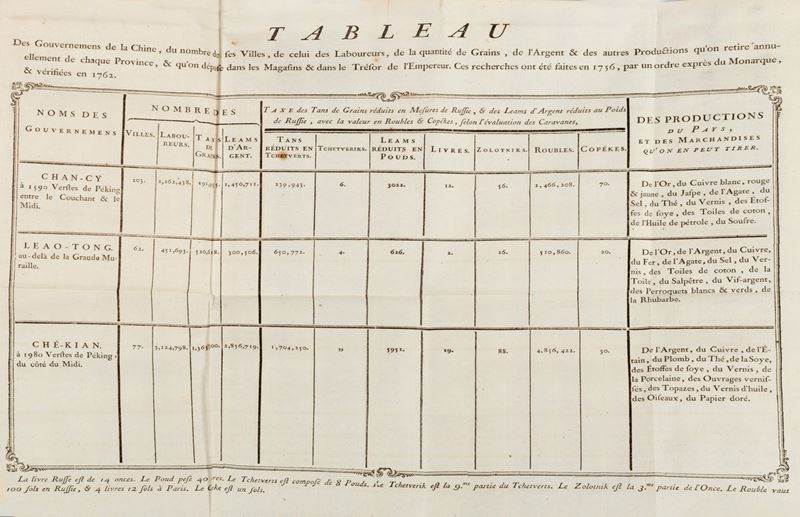 TABLEAU
Des Gouvernemens de la Chine, du nombre de ses Villes, de celui des Laboureurs, de la quantité de Grains, de l'Argent & des autres Productions qu'on retire annu-
ellement de chaque Province, & qu'on dépose dans les Magasins & dans le Trésor de l'Empereur. Ces recherches ont été faites en 1756, par un ordre exprès du Monarque,
& vérifiées en 1762.
NOMS DES
GOUVERNEMENS
NOMBRE DES
VILLES.
LABOU-
REURS.
TANS
DE
GRAINS.
LEAMS
D'AR-
GENT.
TAXE des Tans de Grains réduits en Mesures de Russie, & des Leams d'Argent réduits au Poids
de Russie, avec la valeur en Roubles & Copékes, selon l'évaluation des Caravanes.
TANS
RÉDUITS EN
TCHETVERTS.
TCHETVERIKS.
LEAMS
RÉDUITS EN
POUDS.
LIVRES.
ZOLOTNIKS.
ROUBLES.
COPÉKES.
DES PRODUCTIONS
DU PAYS,
ET DES MARCHANDISES
QU'ON EN PEUT TIRER.
CHAN-CY
à 1590 Verstes de Péking
entre le Couchant & le
Midi.
103.
2,262,438.
1,450,711.
239,943.
6.
3022.
12.
56.
2,466,208.
70.
De l'Or, du Cuivre blanc, rouge
& jaune, du Jaspe, de l'Agate, du
Sel, du Thé, du Vernis, des Étof-
fes de soye, des Toiles de coton,
de l'Huile de pétrole, du Soufre.
LEAO-TONG.
au-delà de la Grande Mu-
raille.
62.
451,693.
520,618.
300,506.
650,772.
4.
626.
2.
16.
510,860.
20.
De l'Or, de l'Argent, du Cuivre,
du Fer, de l'Agate, du Sel, du Ver-
nis, des Toiles de coton, de la
Toile, du Salpêtre, du Vif-argent,
des Perroquets blancs & verds, de
la Rhubarbe.
CHÉ-KIAN.
à 1980 Verstes de Péking,
du côté du Midi.
77.
3,124,798.
2,856,719.
1,704,250.
"
5952.
19.
88.
4,856,422.
30.
De l'Argent, du Cuivre, de l'É-
tain, du Plomb, du Thé, de la Soye,
des Étoffes de soye, du Vernis, de
la Porcelaine, des Ouvrages vernis-
sés, des Topazes, du Vernis d'huile,
des Oiseaux, du Papier doré.
La livre Russe est de 14 onces. Le Poud pese 40 Le Tchetverts est composé de 8 Pouds. Le Tchetverik est la 9.me partie du Tchetverts. Le Zolotnik est la 3.me partie de l'Once. Le Rouble vaut
100 sols en Russie, & 4 livres 12 sols à Paris. Le est un sols.